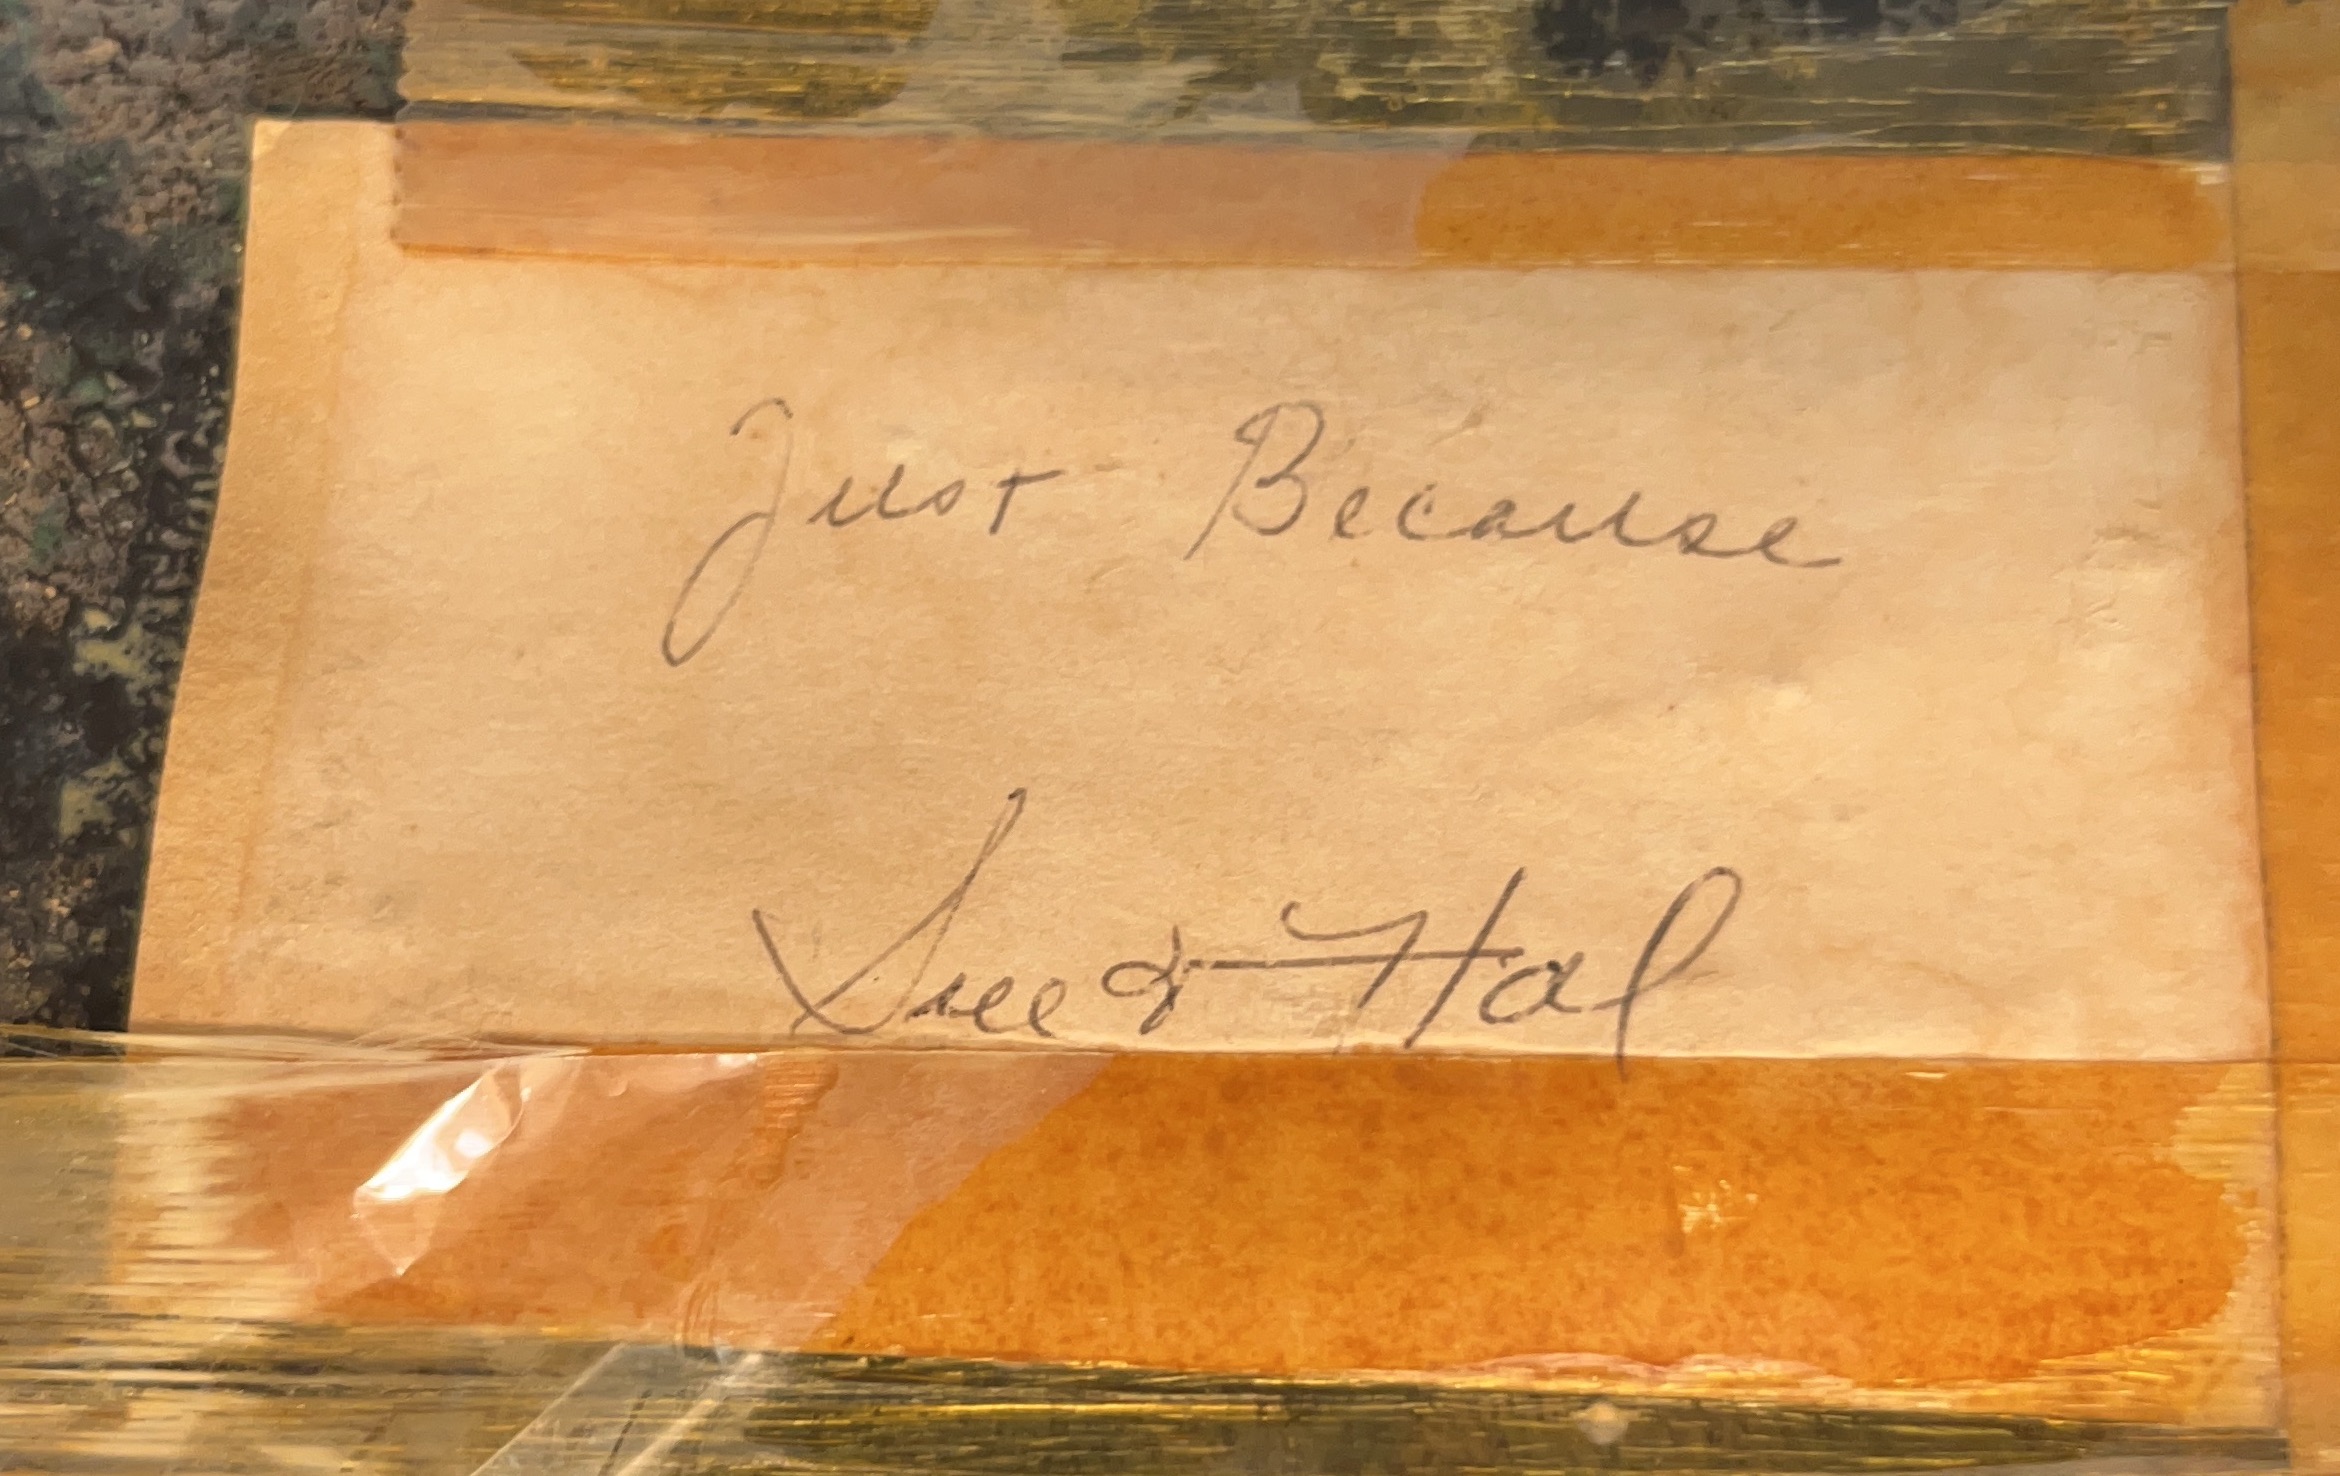 Just Because
Sue & Hal